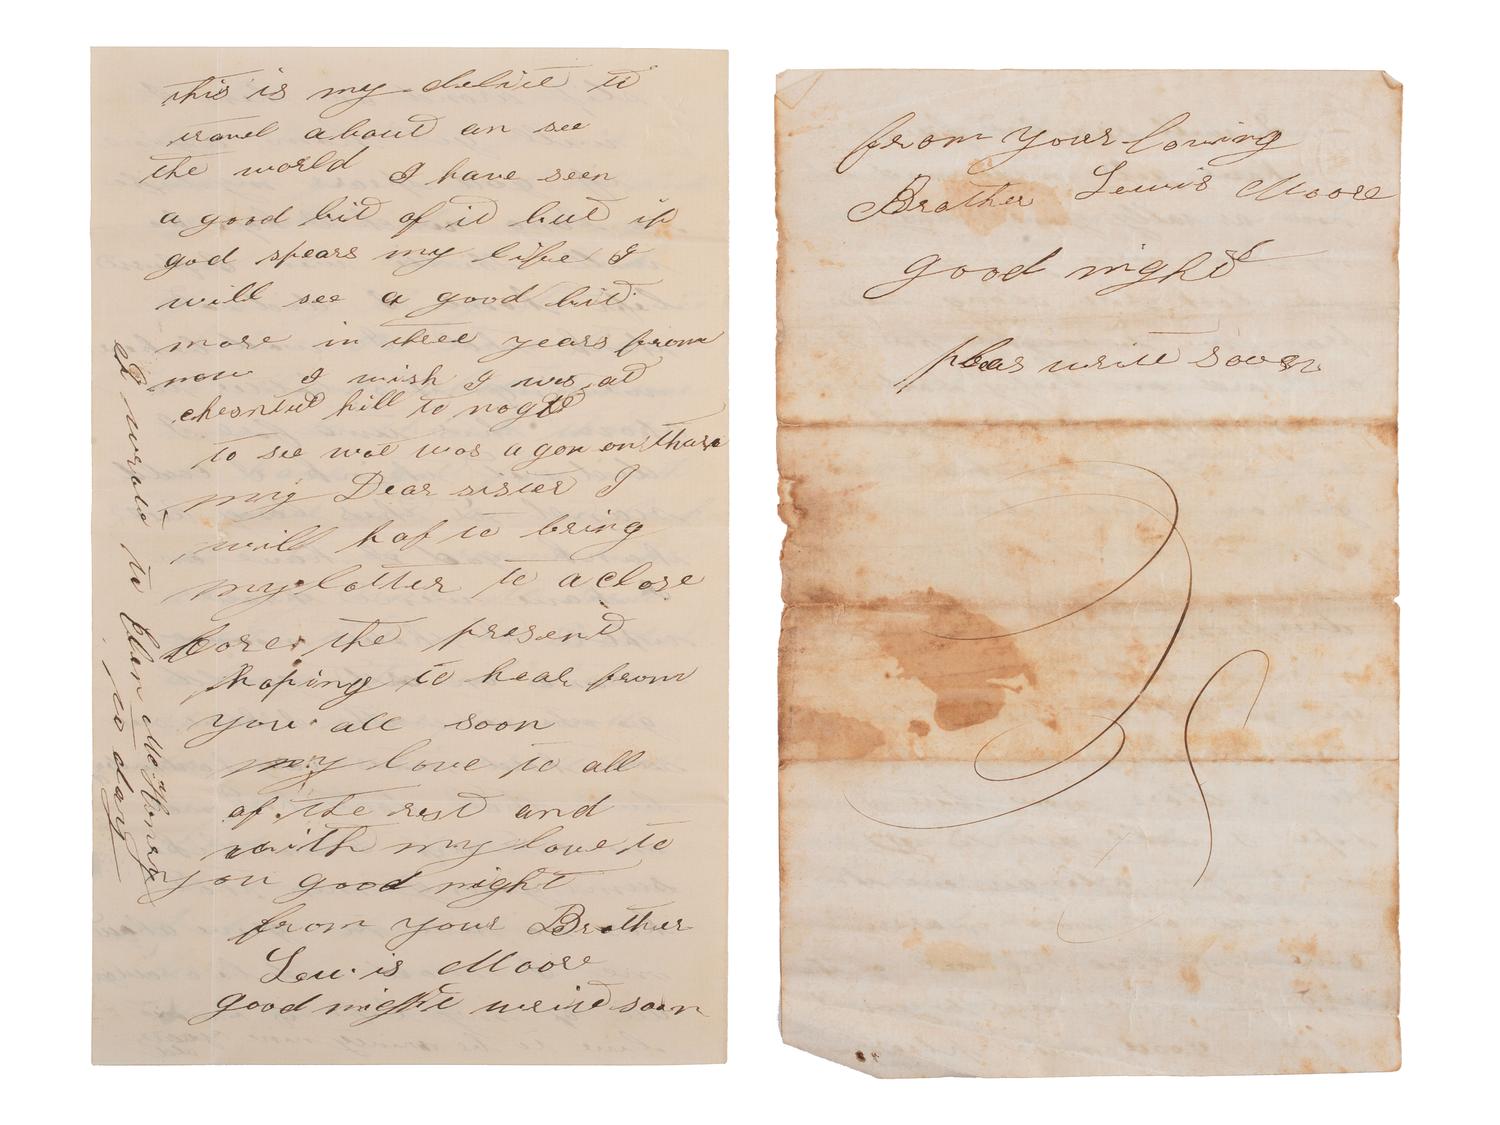 this is my delite to
travel about an see
the world I have seen
a good bit of it but if
god spears my life I
will see a good bit
more in three years from
now I wish I was at
chesnut hill to noght
to see wat was a gon on thare
my Dear sister I
will haf to bring
my letter to a close
fore the present
hoping to hear from
you all soon
my love to all
of the rest and
with my love to
you good night
from your Brother
Lewis Moore
good night write soon
wrote to Elen McHenry
to day
from your loving
Brother Lewis Moore
good night
pleas write soon